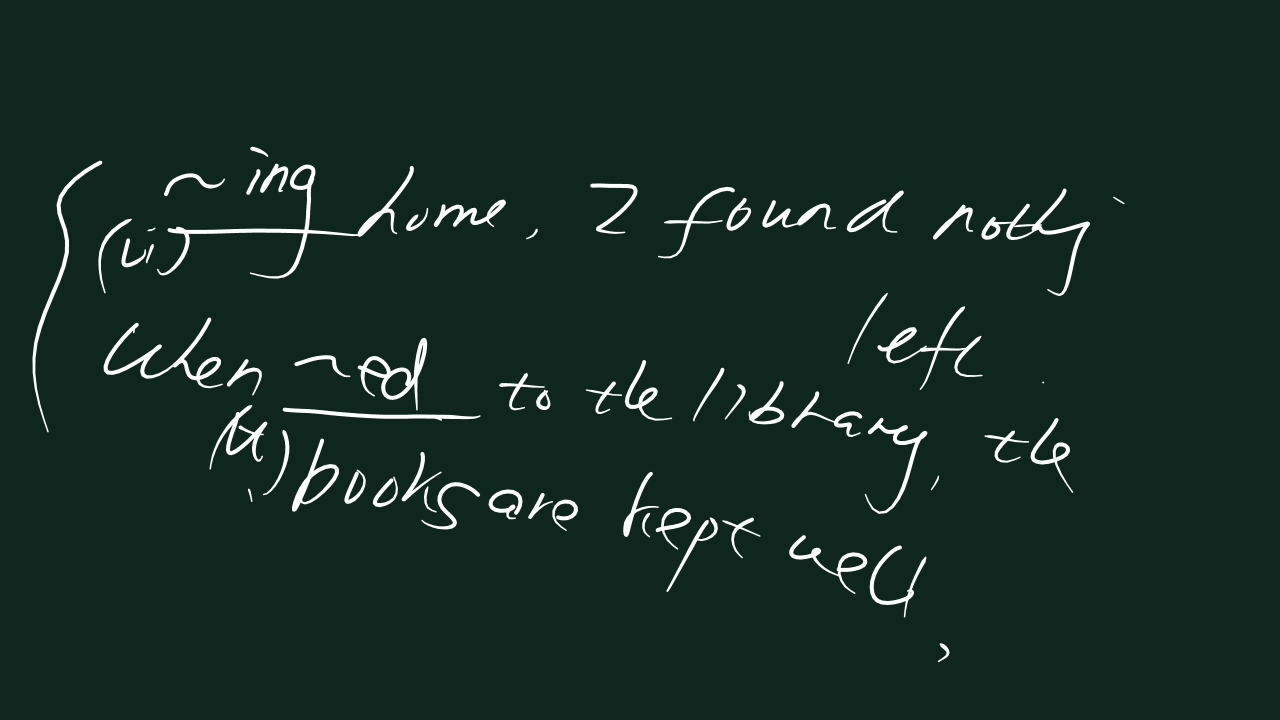 ~ing home, I found nothing
(vi) left
When ~ed to the library, the
(vt) books are kept well,